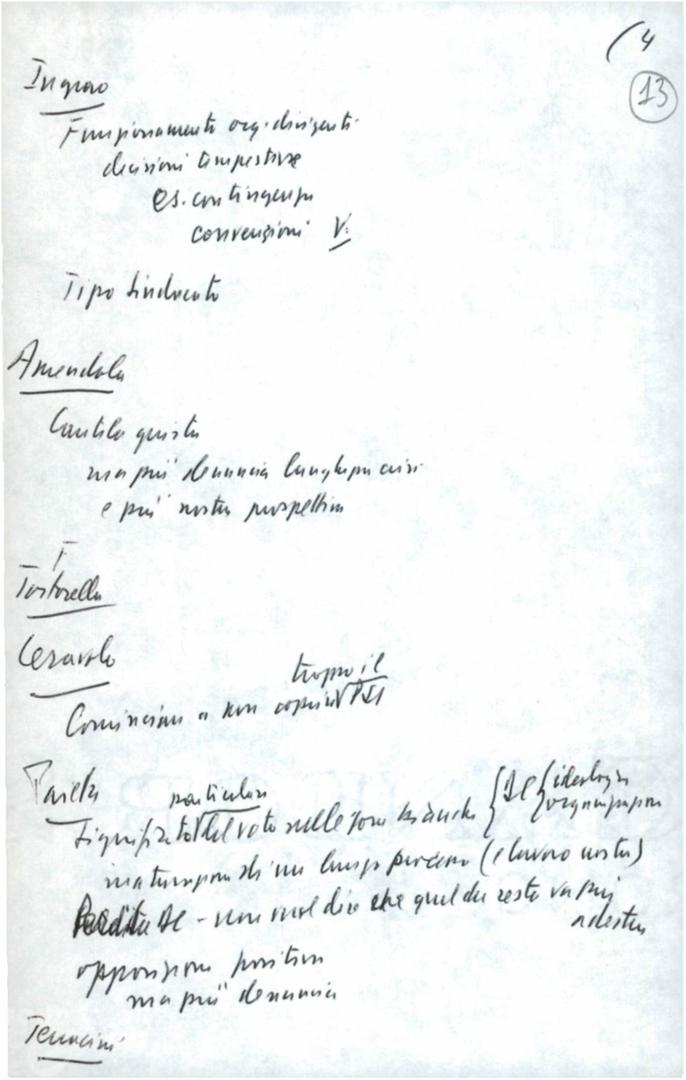 (4
13
Ingrao
Funzionamento org. dirigenti
decisioni tempestive
es. contingenza
convenzioni V.
Tipo sindacato
Amendola
Cautela giusta
ma più denuncia crisi
e più nostra prospettiva
T
Tortorella
Ceravolo
troppo il
Cominciare a non coprire PSI
Pajetta
particolare
Significato del voto nelle zone bianche { DC { ideologia
organizzazione
maturazione di un lungo processo (e lavoro nostro)
Perdita DC - non vuol dire che quel che resta va più
a destra
opposizione positiva
ma più denuncia
Terracini